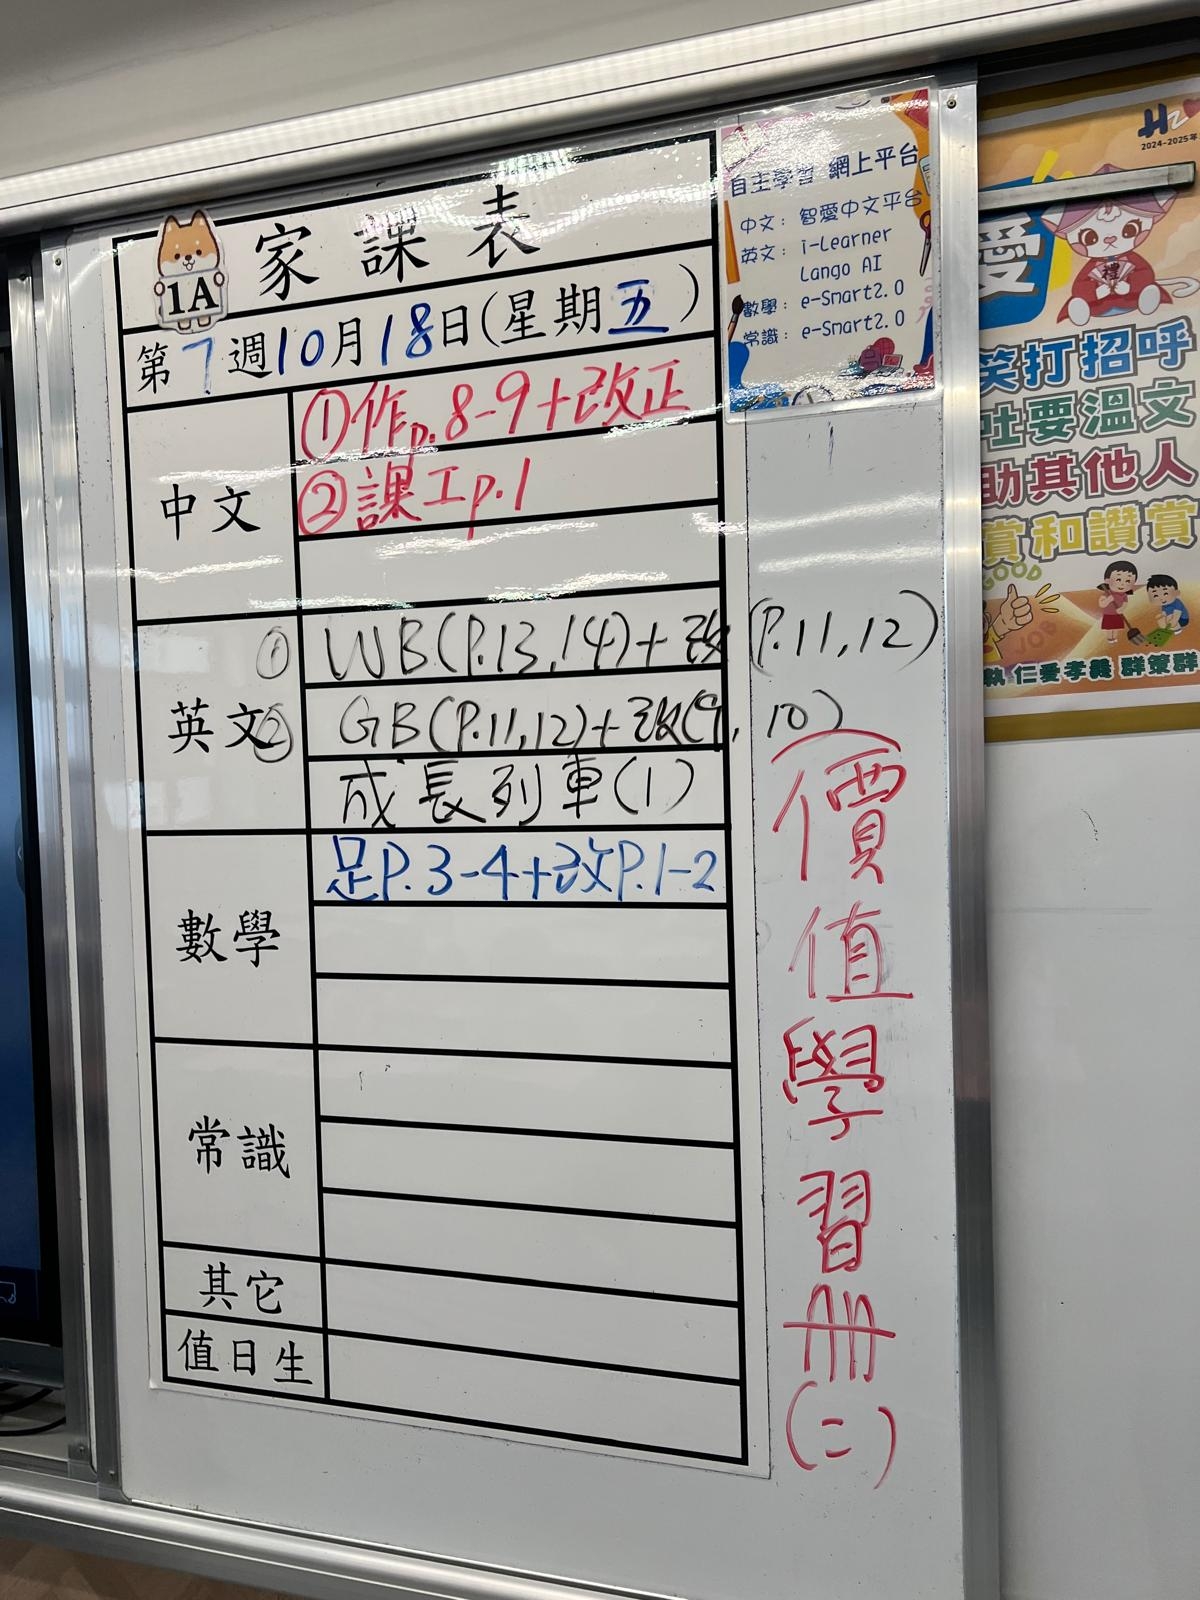 家課表
1A
第7週10月18日(星期五)
中文
①作p.8-9+改正
②課工p.1
英文
① WB(P.13,14)+改(P.11,12)
② GB(P.11,12)+改(9,10)
成長列車(1)
數學
足P.3-4+改P.1-2
常識
其它
值日生
價值學習冊(二)
自主學習 網上平台
中文: 智愛中文平台
英文: i-Learner
Lango AI
數學: e-Smart2.0
常識: e-Smart2.0
2024-2025年
愛
禮
笑打招呼
吐要溫文
助其他人
賞和讚賞
GOOD
JOB
仁愛孝義 群策群